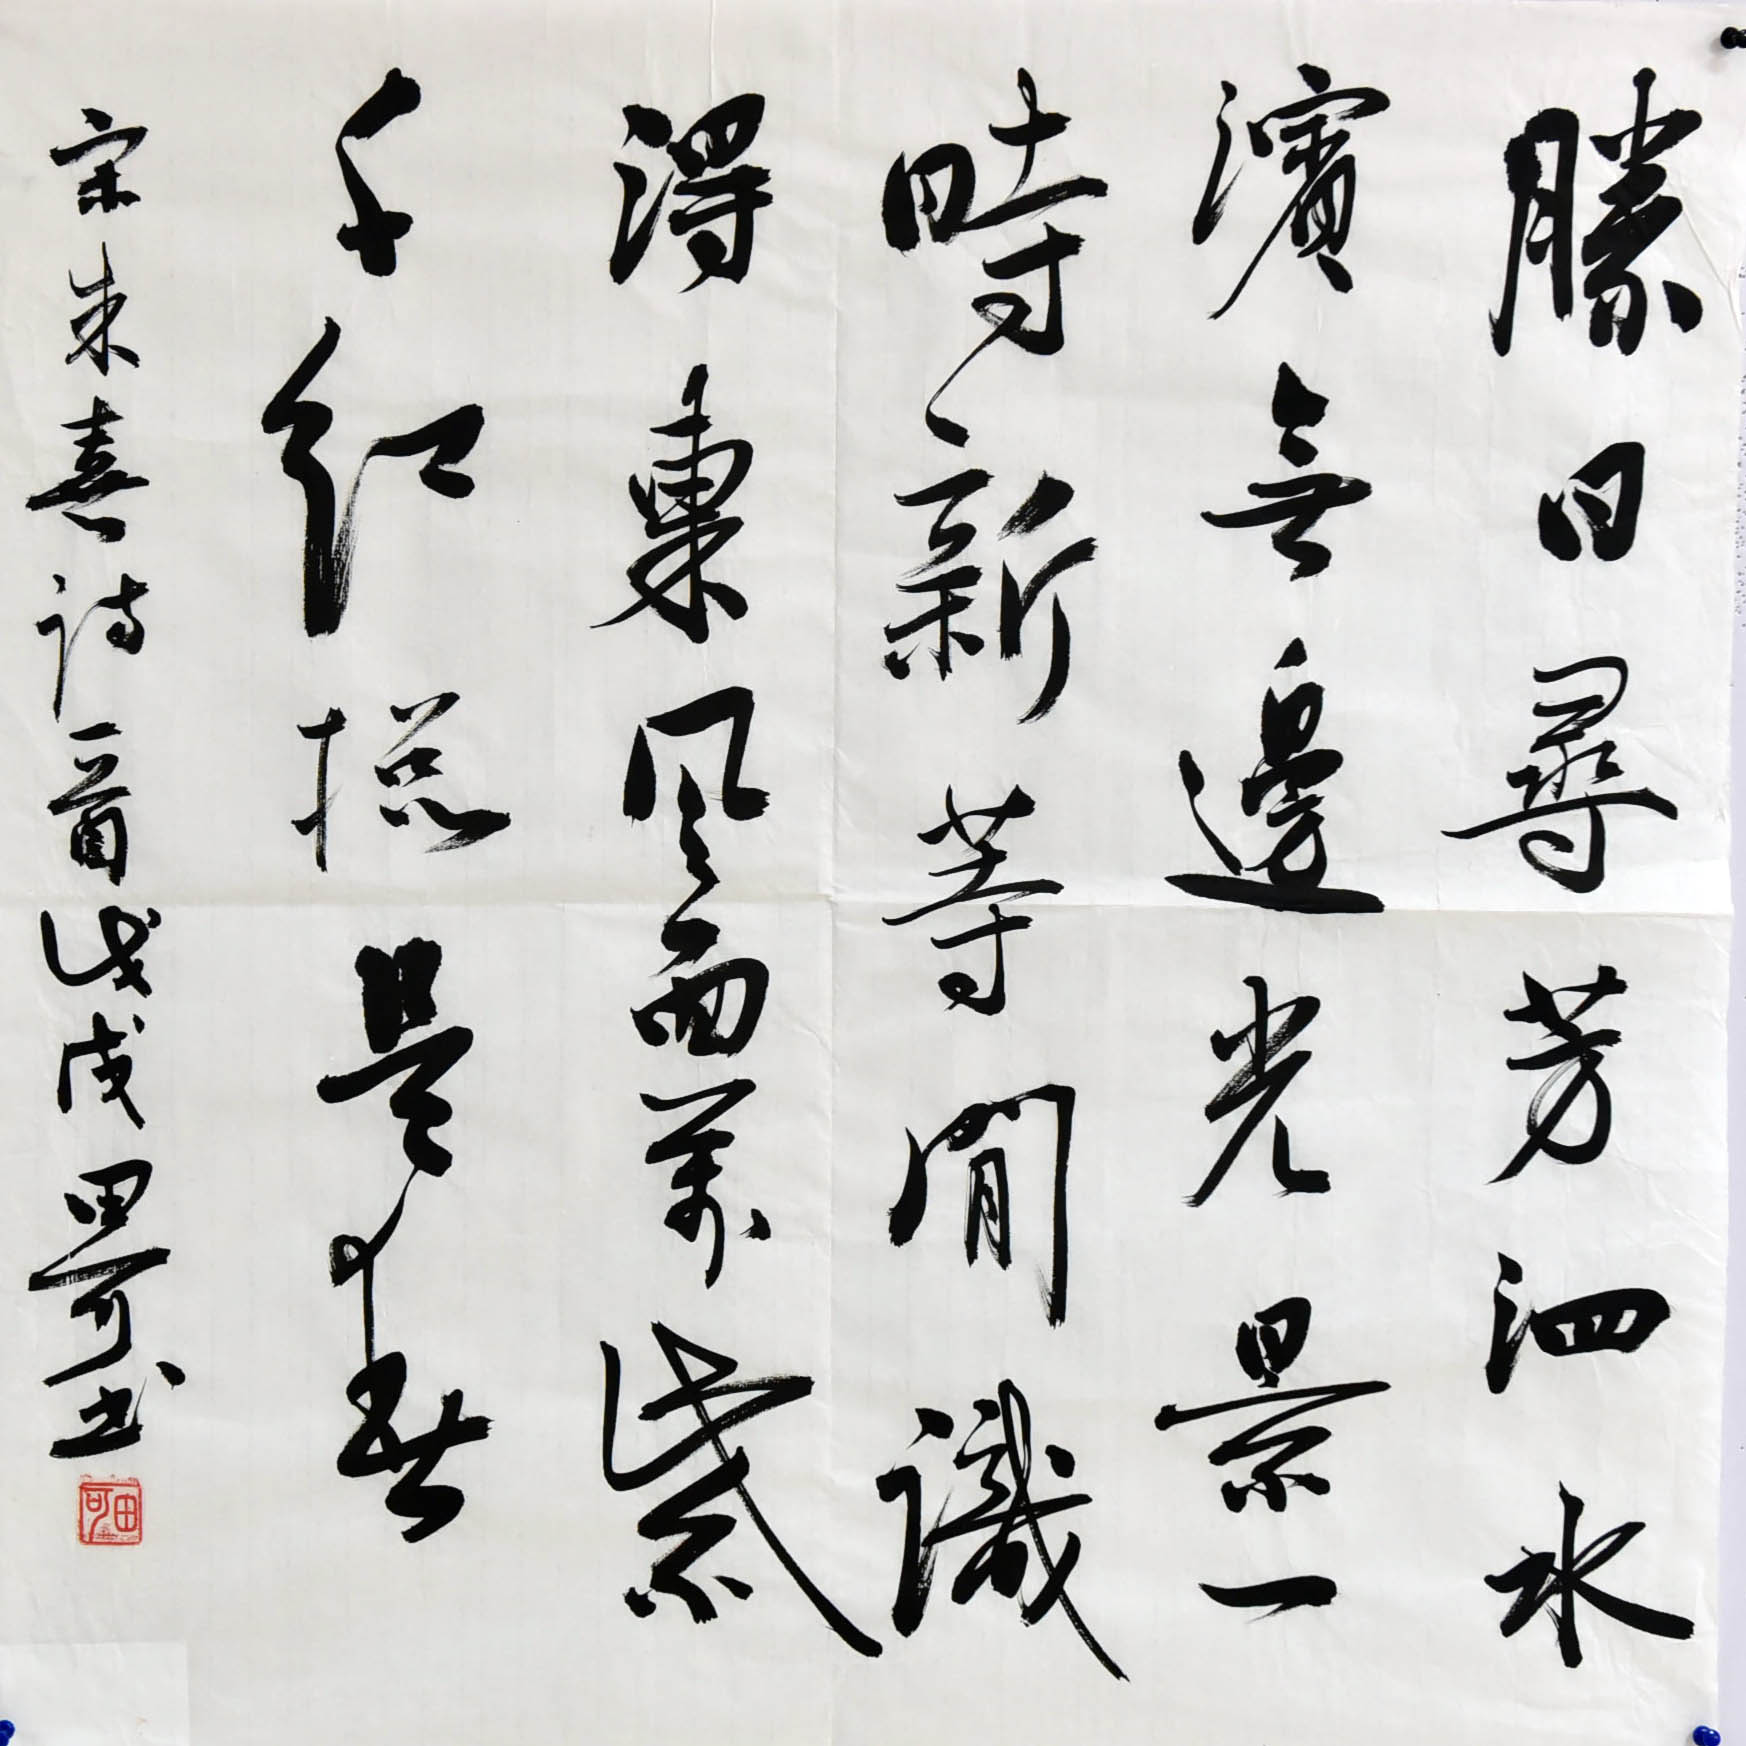 勝日尋芳泗水
濱無邊光景一
時新等閒識
得東風面萬紫
千紅摠是春
宋朱熹詩一首戊戌田可书
田可